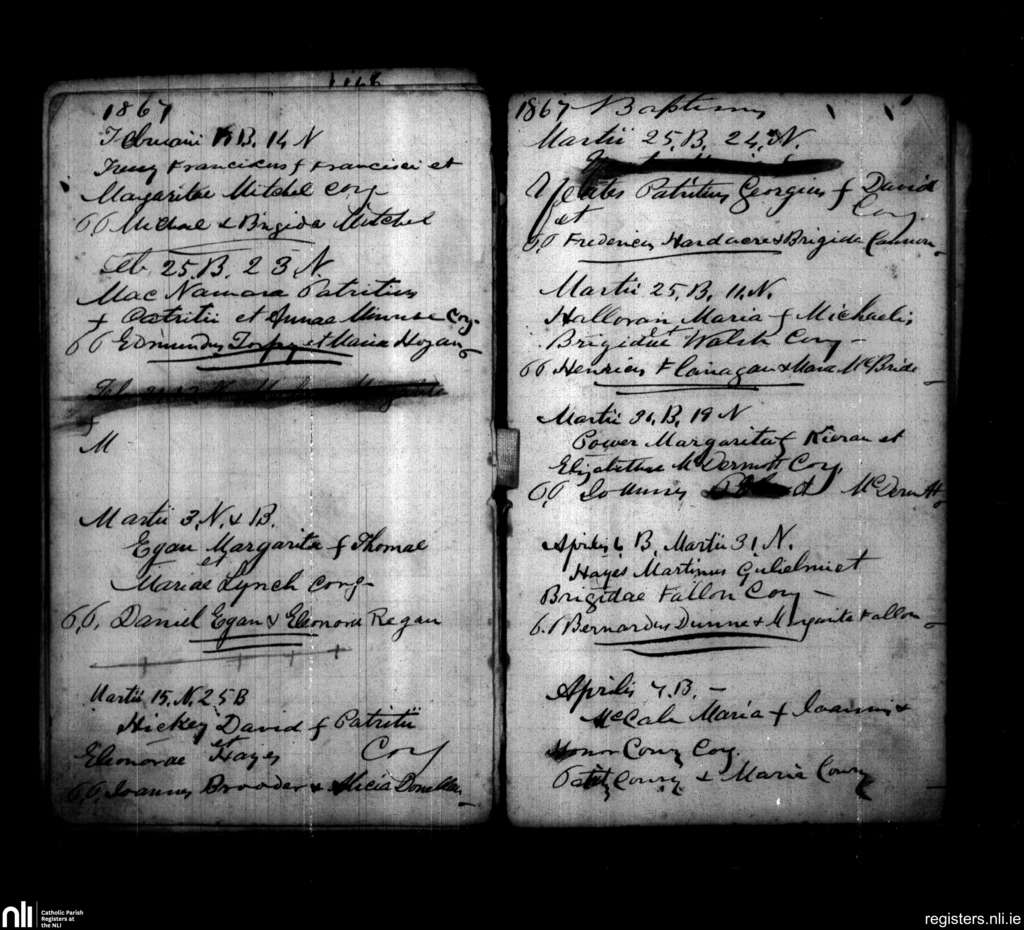 1867
Februarii B. 14 N
Franciscus f Francisci et
Margaritae Mitchel Conj
PP Michael & Brigida Mitchel
Feb 25. B. 23 N.
Mac Namara Patritius
f Patritii et Annae Conj-
PP Edmundus et Maria Hogan
M
Martii 3. N. & B.
Egan Margarita f Thomae
et
Mariae Lynch Conj-
PP. Daniel Egan & Eleonora Regan
Martii 15. N. 25 B
Hickey David f Patritii
et
Eleonorae Hayes Conj
PP. Joannes Broder & Alicia
1867 Baptisms
Martii 25. B. 24. N.
Patritius Georgius f David
et Conj.
PP Fredericus Hardacre & Brigida Cannon
Martii 25. B. 11. N.
Halloran Maria f Michaelis
et
Brigidae Walsh Conj-
PP Henricus Flanagan & Maria McBride
Martii 31. B. 19 N
Power Margarita f Kieran et
Elizabethae McDermott Conj.
PP Joannes McDermott
Aprilis 6 B. Martii 31 N.
Hayes Martinus Gulielmi et
Brigidae Fallon Conj-
P.P Bernardus Dunne & Margarita Fallon
Aprilis 7. B. -
McCale Maria f Joannis &
Honor Conry Conj.
Patk Conry & Maria Conry
nli
Catholic Parish
Registers at
the NLI
registers.nli.ie